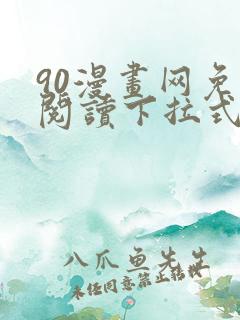 90漫畫网免
閱讀下拉式
八爪鱼先生
未经同意禁止转载